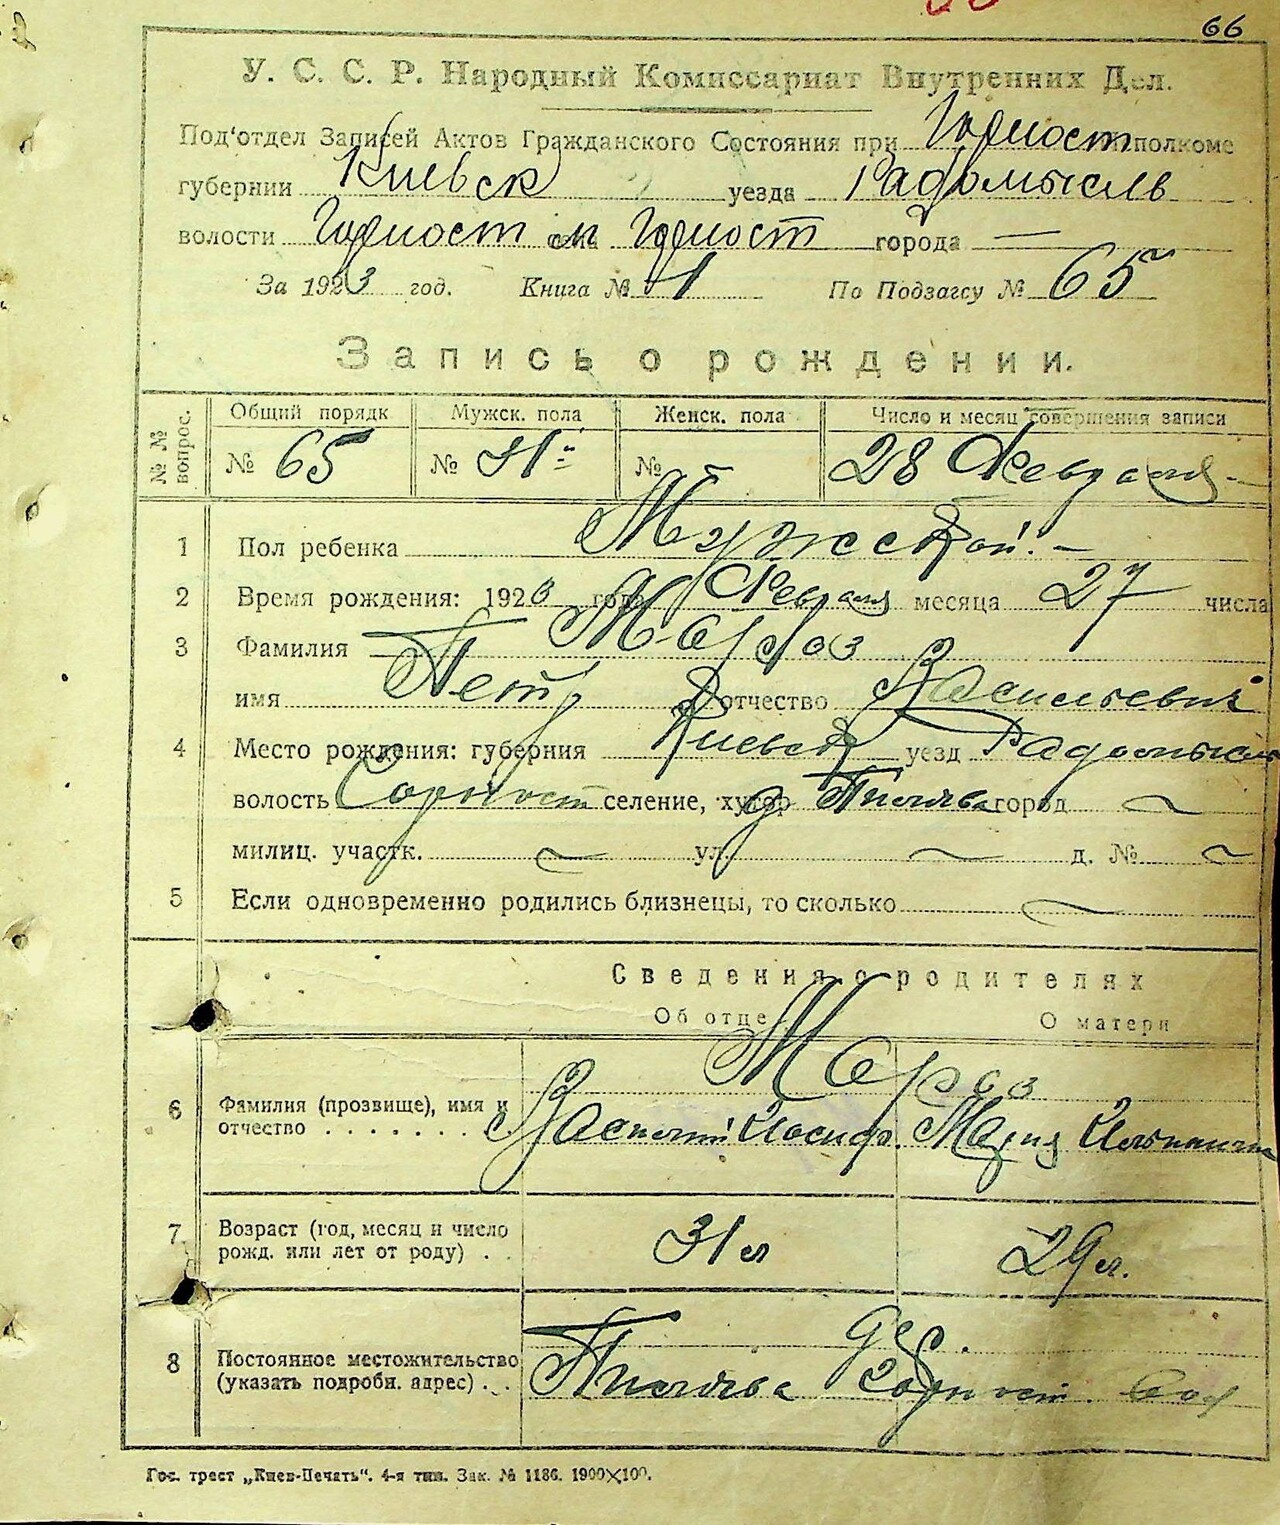 66
У. С. С. Р. Народный Комиссариат Внутренних Дел.
Под'отдел Записей Актов Гражданского Состояния при Горност полкоме
губернии Киевск уезда Радомысль
волости Горност м Горност города —
За 1923 год. Книга № 1 По Подзагсу № 65
Запись о рождении.
№ № вопрос. Общий порядк Мужск. пола Женск. пола Число и месяц совершения записи
№ 65 № 31 № — 28 Февраля
1 Пол ребенка Мужской. —
2 Время рождения: 1923 года Февраля месяца 27 числа
3 Фамилия Мороз
имя Петр отчество Васильевич
4 Место рождения: губерния Киевск уезд Радомысль
волость Горност селение, хутор д город ~
милиц. участк. ~ ул. ~ д. № ~
5 Если одновременно родились близнецы, то сколько ~
Сведения о родителях
Об отце О матери
Мороз
6 Фамилия (прозвище), имя и Василий Иосиф. Мария
отчество . . . . . . .
7 Возраст (год, месяц и число 31 л 29 л.
рожд. или лет от роду) . .
дер.
8 Постоянное местожительство
(указать подробн. адрес) . . . Горност. вол
Гос. трест „Киев-Печать“. 4-я тип. Зак. № 1186. 1900×100.